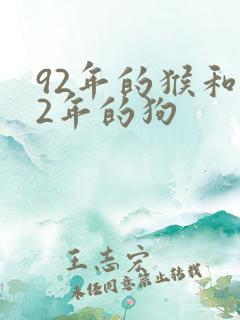 92年的猴和
2年的狗
王志宏
未经同意禁止转载